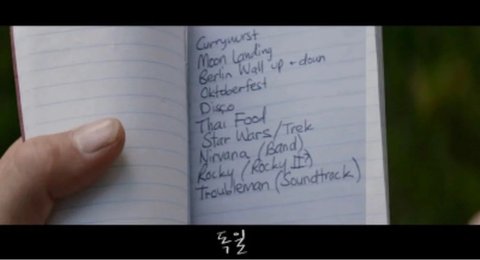 Currywurst
Moon Landing
Berlin Wall up + down
Oktoberfest
Disco
Thai Food
Star Wars/Trek
Nirvana (Band)
Rocky (Rocky II?)
Troubleman (Soundtrack)
독일